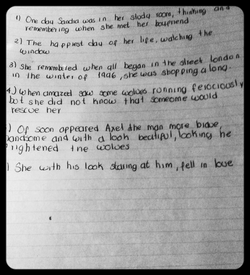 1) One day Sandra was in her study room, thinking and
remembering when she met her boyfriend
2) The happiest day of her life, watching the
window
3) She remembered when all began in the street London
in the winter of 1986, she was shopping along.
4) When amazed saw some wolves running ferociously
but she did not know that someone would
rescue her
) Of soon appeared Axel the man more brave,
handsome and with a look beatiful, looking he
frightened the wolves
) She with his look staring at him, fell in love